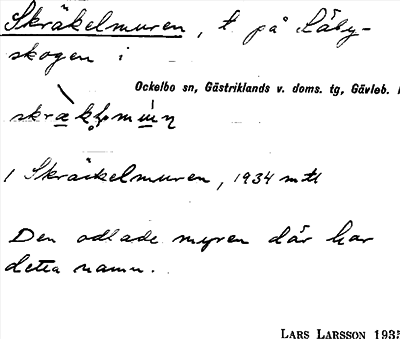 Skräkelmuren, t. på Såby-
skogen i
Ockelbo sn, Gästriklands v. doms. tg, Gävleb.
1 Skräckelmuren, 1934 mtl
Den odlade myren där har
detta namn.
LARS LARSSON 1935